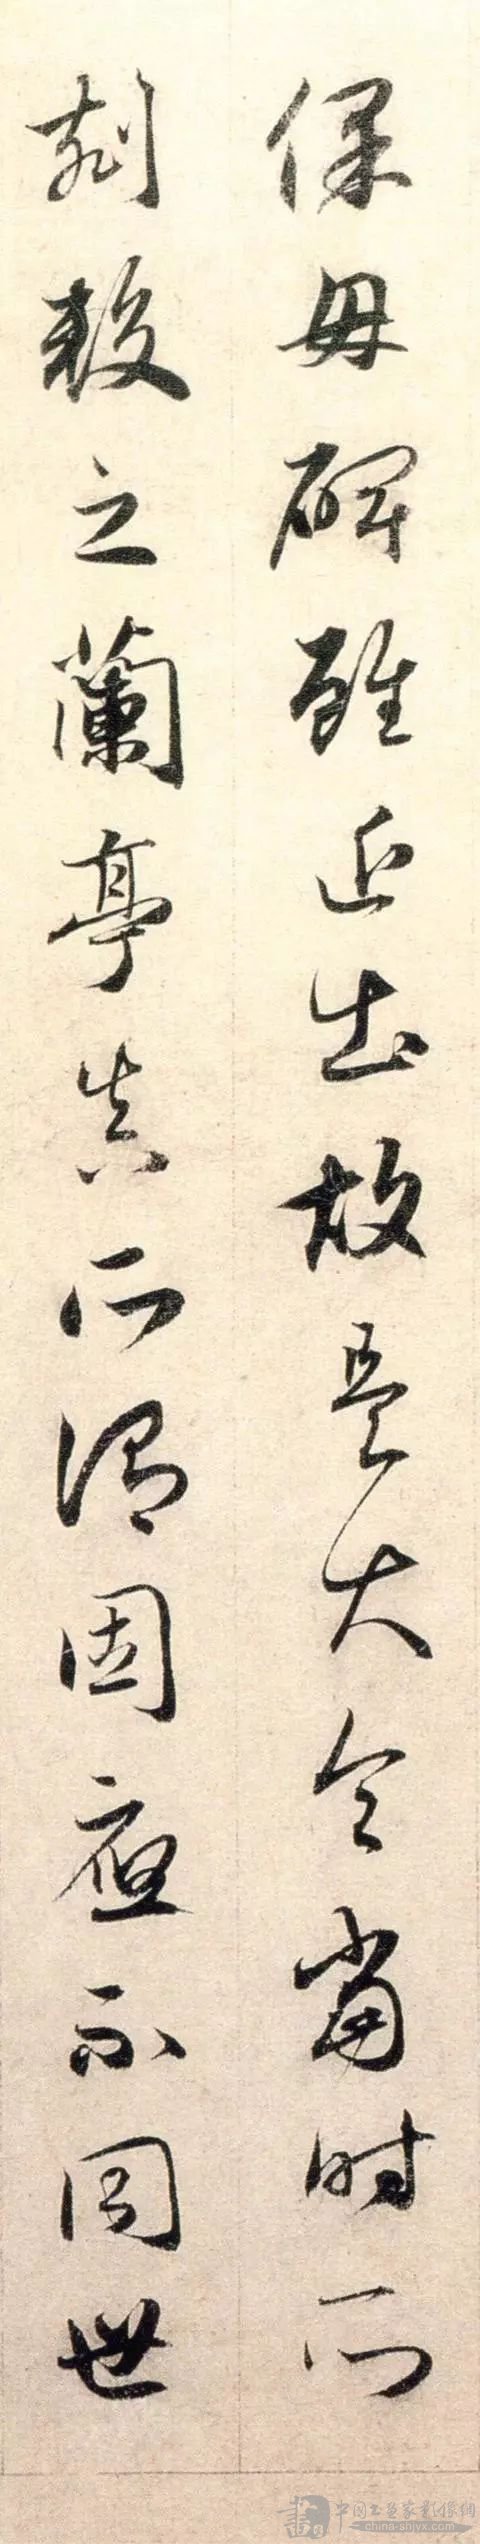 保母碑雖近出故是大令當時所
刻較之蘭亭真所謂固應不同世
中国书画家影像网
china-shjvx.com